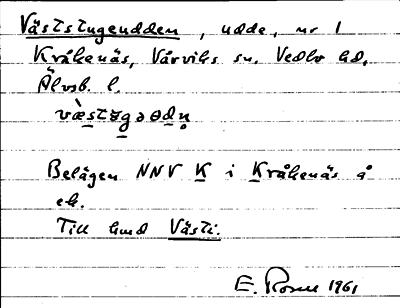 Väststugeudden, udde, nr 1
Kråkenäs, Vårviks sn. Vedbo hd,
Älvsb. l.
Belägen NNV K i Kråkenäs å
ek.
Till hmd Västi.
E. Rosen 1961